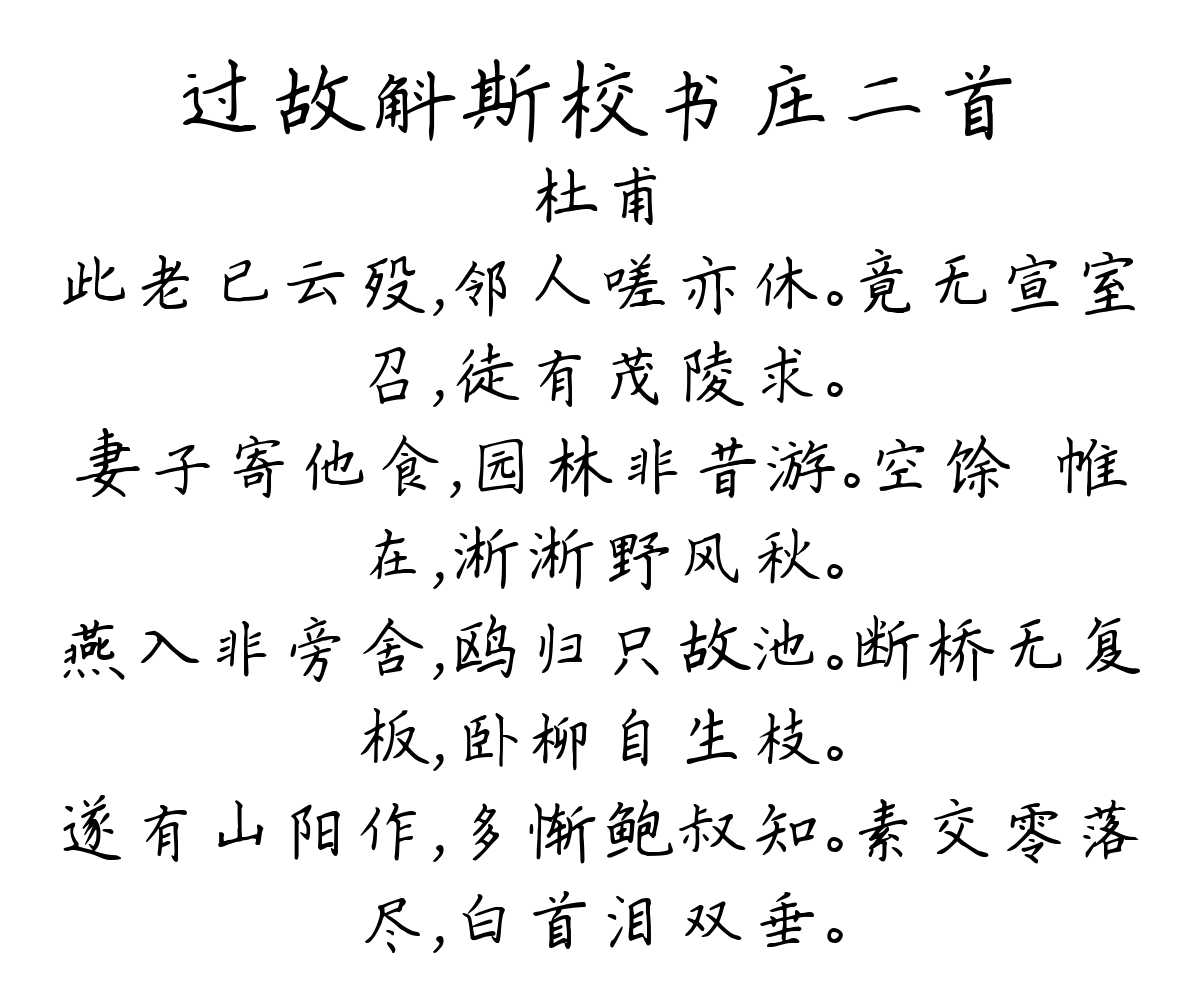 过故斛斯校书庄二首
杜甫
此老已云殁,邻人嗟亦休。竟无宣室
召,徒有茂陵求。
妻子寄他食,园林非昔游。空馀 帷
在,淅淅野风秋。
燕入非旁舍,鸥归只故池。断桥无复
板,卧柳自生枝。
遂有山阳作,多惭鲍叔知。素交零落
尽,白首泪双垂。